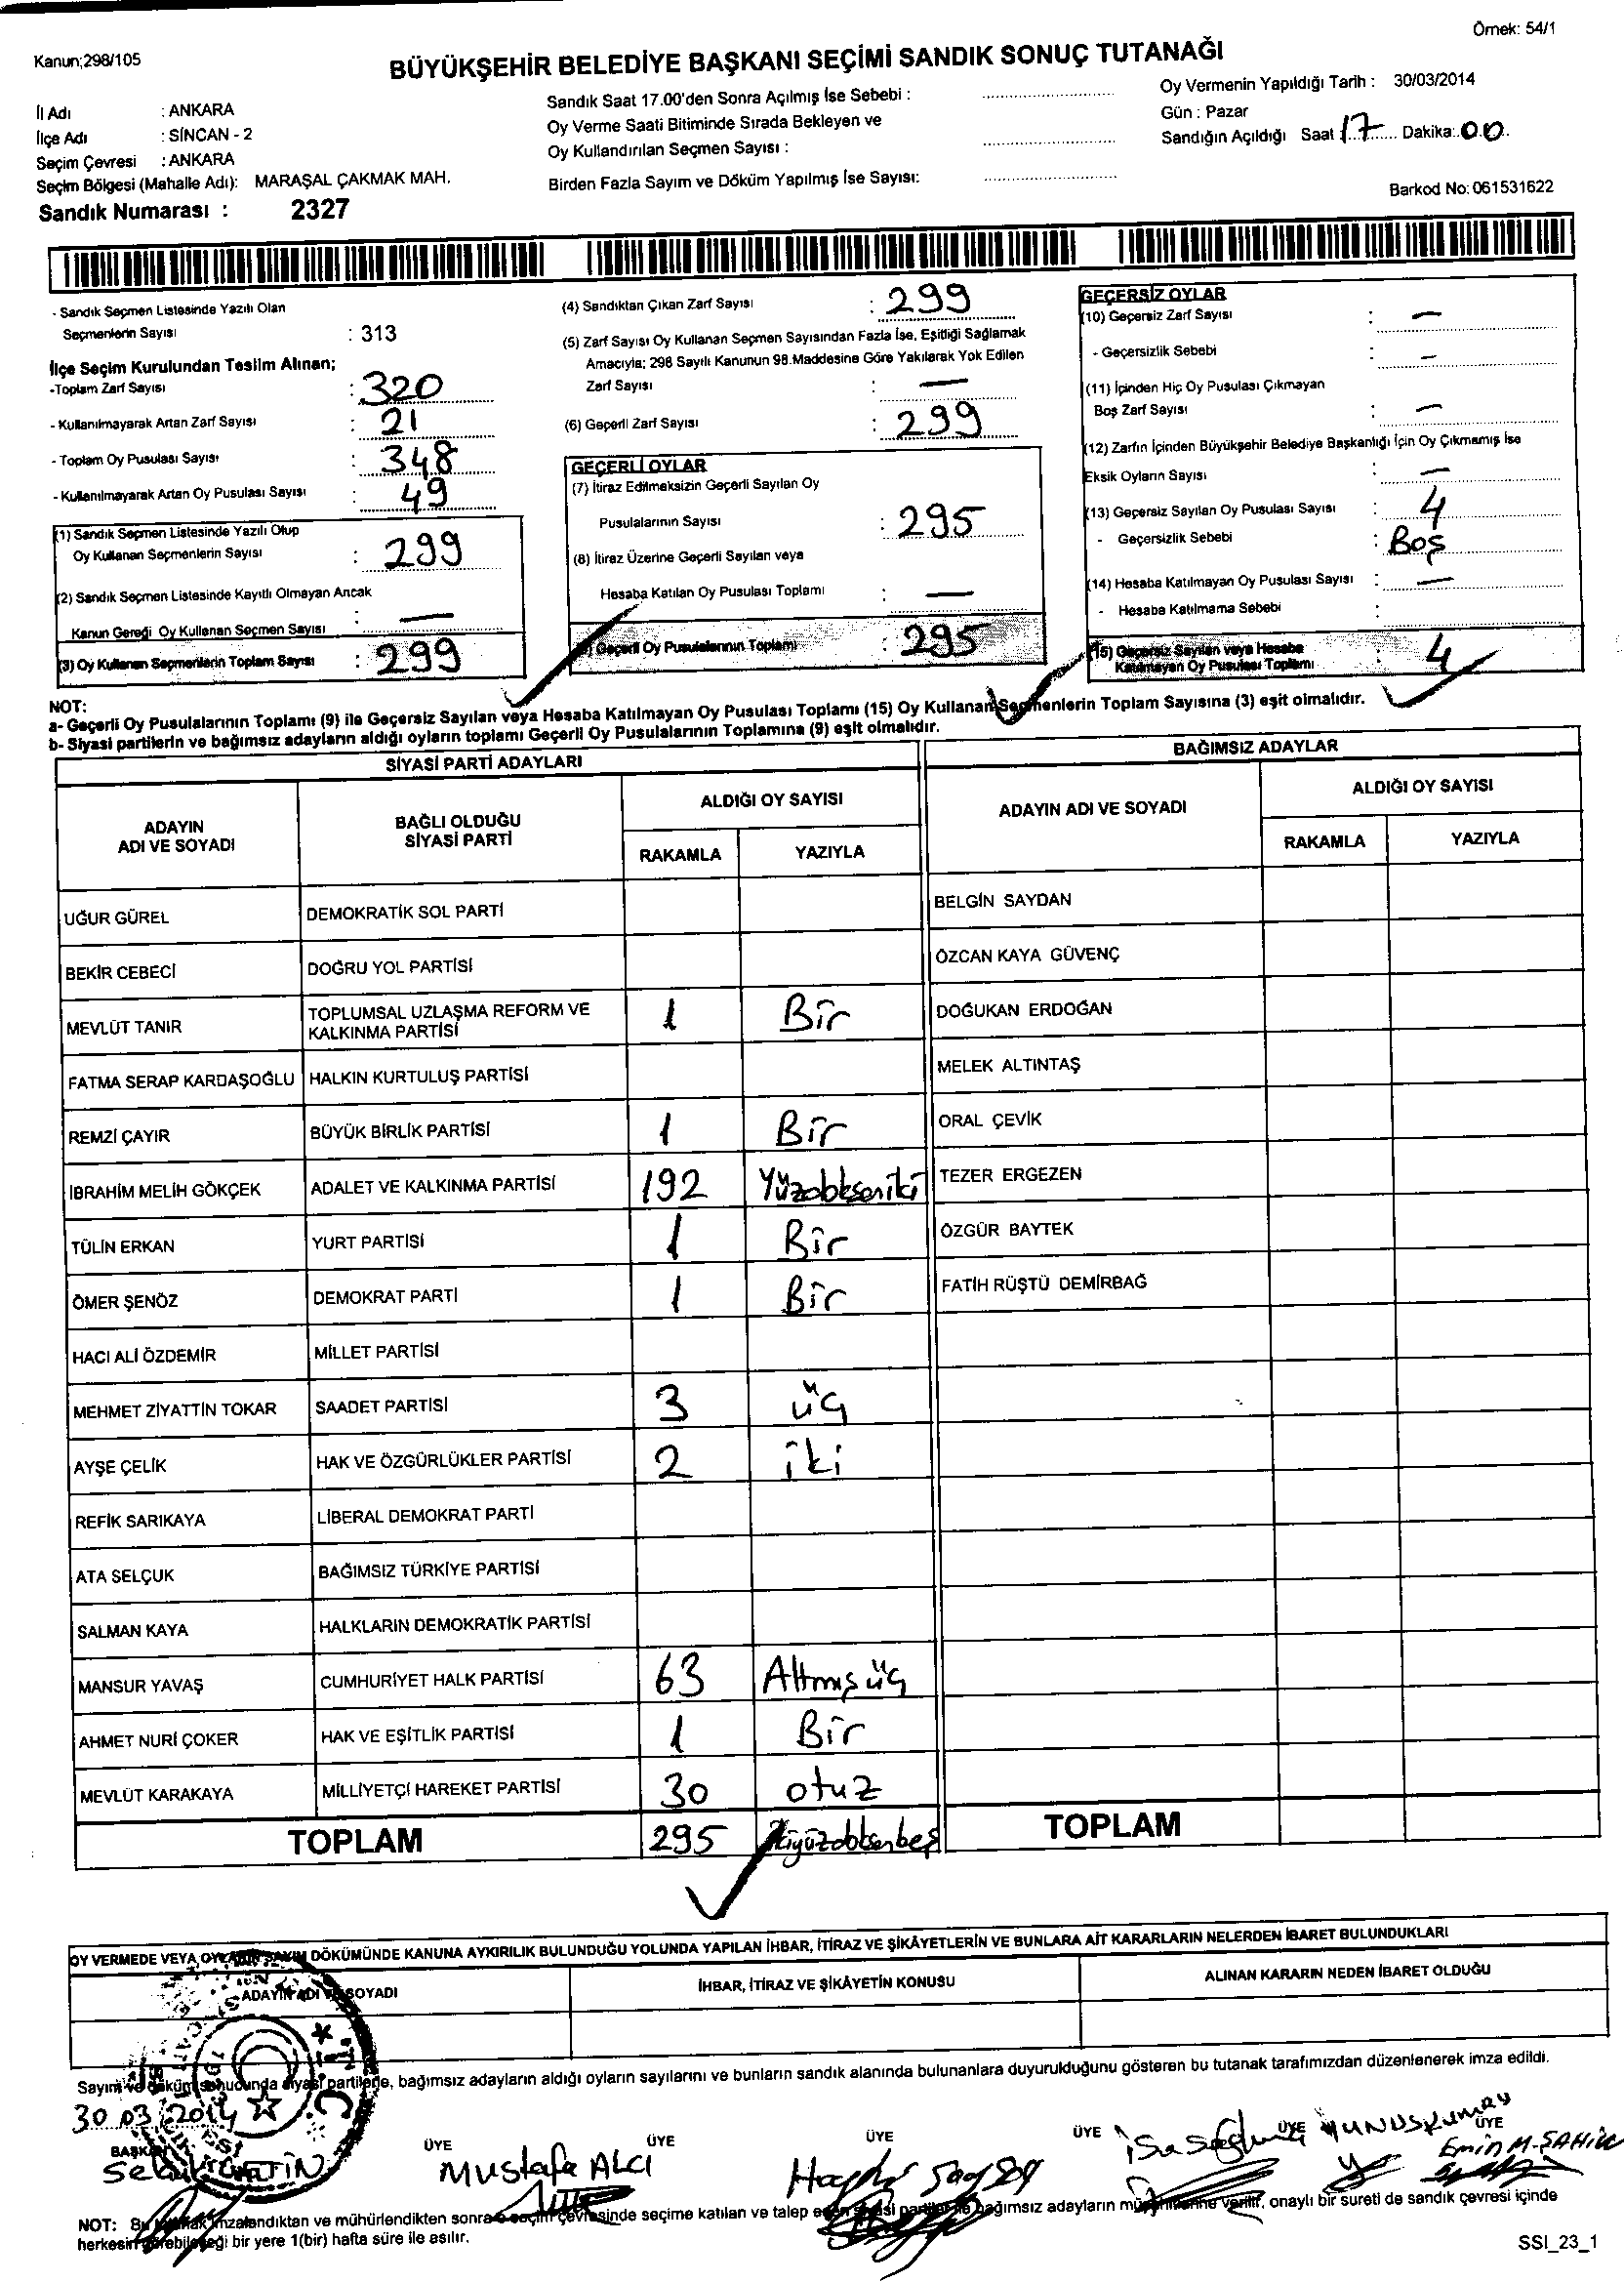 Örnek: 54/1
Kanun;298/105
BÜYÜKŞEHİR BELEDİYE BAŞKANI SEÇİMİ SANDIK SONUÇ TUTANAĞI
İl Adı : ANKARA
İlçe Adı : SİNCAN - 2
Seçim Çevresi : ANKARA
Seçim Bölgesi (Mahalle Adı): MARAŞAL ÇAKMAK MAH.
Sandık Numarası : 2327
Sandık Saat 17.00'den Sonra Açılmış İse Sebebi :
Oy Verme Saati Bitiminde Sırada Bekleyen ve
Oy Kullandırılan Seçmen Sayısı :
Birden Fazla Sayım ve Döküm Yapılmış İse Sayısı:
Oy Vermenin Yapıldığı Tarih : 30/03/2014
Gün : Pazar
Sandığın Açıldığı Saat 17 Dakika: 00
Barkod No: 061531622
- Sandık Seçmen Listesinde Yazılı Olan
Seçmenlerin Sayısı : 313
İlçe Seçim Kurulundan Teslim Alınan;
-Toplam Zarf Sayısı : 320
- Kullanılmayarak Artan Zarf Sayısı : 21
- Toplam Oy Pusulası Sayısı : 348
- Kullanılmayarak Artan Oy Pusulası Sayısı : 49
(1) Sandık Seçmen Listesinde Yazılı Olup
Oy Kullanan Seçmenlerin Sayısı : 299
(2) Sandık Seçmen Listesinde Kayıtlı Olmayan Ancak
Kanun Gereği Oy Kullanan Seçmen Sayısı : —
(3) Oy Kullanan Seçmenlerin Toplam Sayısı : 299
(4) Sandıktan Çıkan Zarf Sayısı : 299
(5) Zarf Sayısı Oy Kullanan Seçmen Sayısından Fazla İse, Eşitliği Sağlamak
Amacıyla; 298 Sayılı Kanunun 98.Maddesine Göre Yakılarak Yok Edilen
Zarf Sayısı : —
(6) Geçerli Zarf Sayısı : 299
GEÇERLİ OYLAR
(7) İtiraz Edilmeksizin Geçerli Sayılan Oy
Pusulalarının Sayısı : 295
(8) İtiraz Üzerine Geçerli Sayılan veya
Hesaba Katılan Oy Pusulası Toplamı : —
Geçerli Oy Pusulalarının Toplamı : 295
GEÇERSİZ OYLAR
(10) Geçersiz Zarf Sayısı : —
- Geçersizlik Sebebi : —
(11) İçinden Hiç Oy Pusulası Çıkmayan
Boş Zarf Sayısı : —
(12) Zarfın İçinden Büyükşehir Belediye Başkanlığı İçin Oy Çıkmamış İse
Eksik Oyların Sayısı : —
(13) Geçersiz Sayılan Oy Pusulası Sayısı : 4
- Geçersizlik Sebebi : Boş
(14) Hesaba Katılmayan Oy Pusulası Sayısı : —
- Hesaba Katılmama Sebebi :
(15) Geçersiz Sayılan veya Hesaba
Katılmayan Oy Pusulası Toplamı : 4
NOT:
a- Geçerli Oy Pusulalarının Toplamı (9) ile Geçersiz Sayılan veya Hesaba Katılmayan Oy Pusulası Toplamı (15) Oy Kullanan Seçmenlerin Toplam Sayısına (3) eşit olmalıdır.
b- Siyasi partilerin ve bağımsız adayların aldığı oyların toplamı Geçerli Oy Pusulalarının Toplamına (9) eşit olmalıdır.
SİYASİ PARTİ ADAYLARI
ADAYIN
ADI VE SOYADI
BAĞLI OLDUĞU
SİYASİ PARTİ
ALDIĞI OY SAYISI
RAKAMLA YAZIYLA
UĞUR GÜREL DEMOKRATİK SOL PARTİ
BEKİR CEBECİ DOĞRU YOL PARTİSİ
MEVLÜT TANIR TOPLUMSAL UZLAŞMA REFORM VE
KALKINMA PARTİSİ 1 Bir
FATMA SERAP KARDAŞOĞLU HALKIN KURTULUŞ PARTİSİ
REMZİ ÇAYIR BÜYÜK BİRLİK PARTİSİ 1 Bir
İBRAHİM MELİH GÖKÇEK ADALET VE KALKINMA PARTİSİ 192 Yüzdoksaniki
TÜLİN ERKAN YURT PARTİSİ 1 Bir
ÖMER ŞENÖZ DEMOKRAT PARTİ 1 Bir
HACI ALİ ÖZDEMİR MİLLET PARTİSİ
MEHMET ZİYATTİN TOKAR SAADET PARTİSİ 3 üç
AYŞE ÇELİK HAK VE ÖZGÜRLÜKLER PARTİSİ 2 iki
REFİK SARIKAYA LİBERAL DEMOKRAT PARTİ
ATA SELÇUK BAĞIMSIZ TÜRKİYE PARTİSİ
SALMAN KAYA HALKLARIN DEMOKRATİK PARTİSİ
MANSUR YAVAŞ CUMHURİYET HALK PARTİSİ 63 Altmışüç
AHMET NURİ ÇOKER HAK VE EŞİTLİK PARTİSİ 1 Bir
MEVLÜT KARAKAYA MİLLİYETÇİ HAREKET PARTİSİ 30 otuz
TOPLAM 295 ikiyüzdoksanbeş
BAĞIMSIZ ADAYLAR
ADAYIN ADI VE SOYADI
ALDIĞI OY SAYISI
RAKAMLA YAZIYLA
BELGİN SAYDAN
ÖZCAN KAYA GÜVENÇ
DOĞUKAN ERDOĞAN
MELEK ALTINTAŞ
ORAL ÇEVİK
TEZER ERGEZEN
ÖZGÜR BAYTEK
FATİH RÜŞTÜ DEMİRBAĞ
TOPLAM
OY VERMEDE VEYA OYLARIN SAYIM DÖKÜMÜNDE KANUNA AYKIRILIK BULUNDUĞU YOLUNDA YAPILAN İHBAR, İTİRAZ VE ŞİKÂYETLERİN VE BUNLARA AİT KARARLARIN NELERDEN İBARET BULUNDUKLARI
ADAYIN ADI VE SOYADI İHBAR, İTİRAZ VE ŞİKÂYETİN KONUSU ALINAN KARARIN NEDEN İBARET OLDUĞU
Sayım ve döküm sonucunda siyasi partilerle, bağımsız adayların aldığı oyların sayılarını ve bunların sandık alanında bulunanlara duyurulduğunu gösteren bu tutanak tarafımızdan düzenlenerek imza edildi.
30.03.2014
BAŞKAN ÜYE ÜYE ÜYE ÜYE ÜYE ÜYE
Mustafa ALCI
Emin M. ŞAHİN
NOT: Bu tutanak imzalandıktan ve mühürlendikten sonra o seçim çevresinde seçime katılan ve talep eden siyasi partiler ile bağımsız adayların müşahitlerine verilir, onaylı bir sureti de sandık çevresi içinde
herkesin görebileceği bir yere 1(bir) hafta süre ile asılır.
SSI_23_1